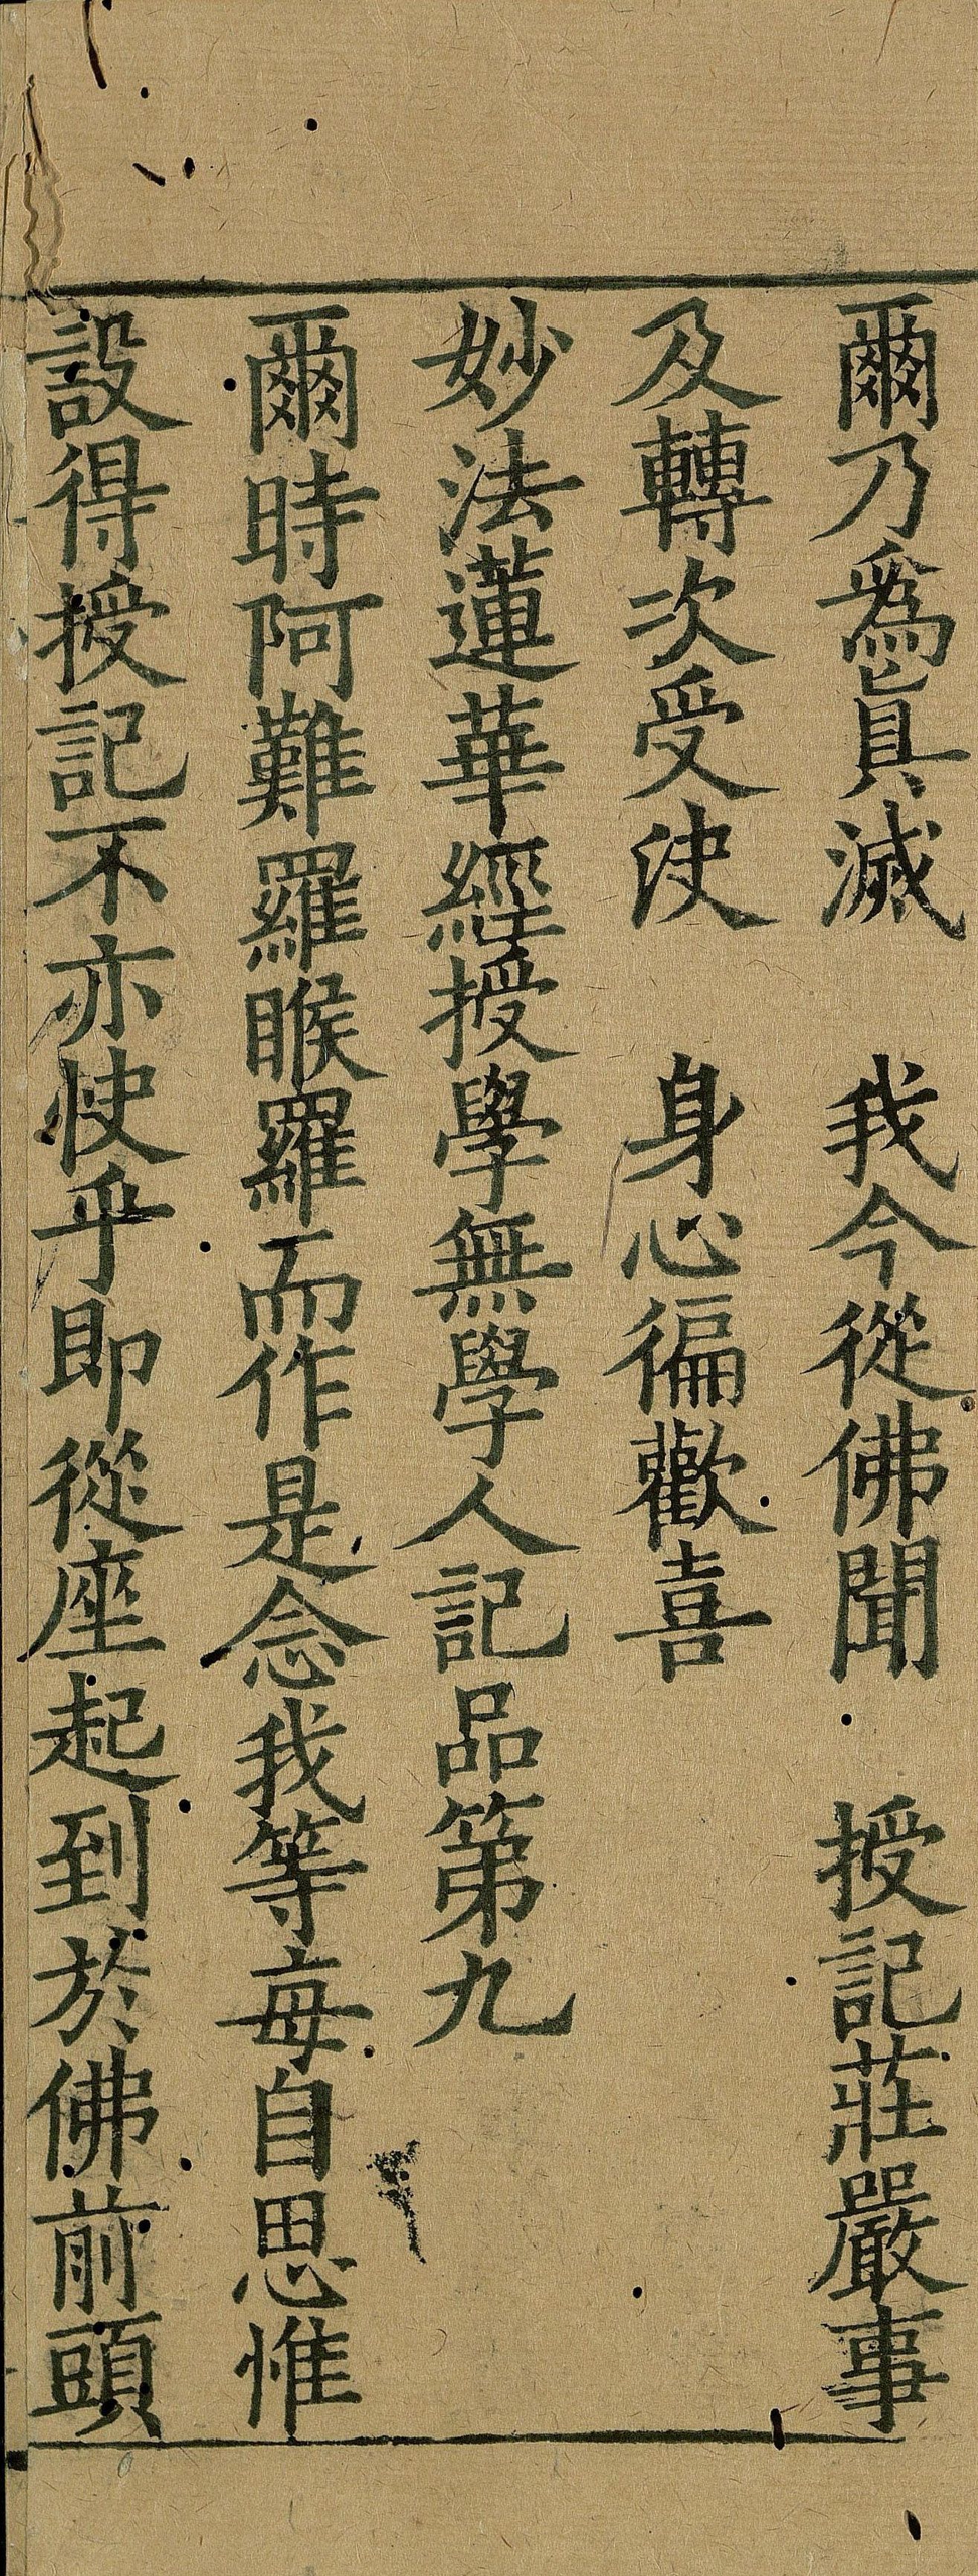 爾乃爲眞滅　我今從佛聞　授記莊嚴事
及轉次受決　身心徧歡喜
妙法蓮華經授學無學人記品第九
爾時阿難羅睺羅而作是念我等每自思惟
設得授記不亦快乎即從座起到於佛前頭